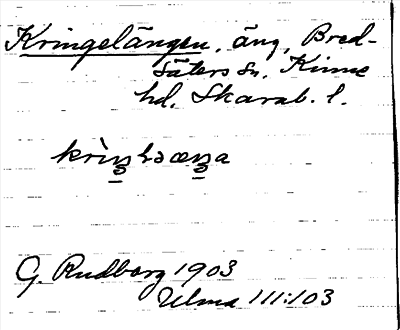 Kringelängen, äng, Bred-
säters sn. Kinne
hd. Skarab. l.
G. Rudborg 1903
Ulma 111:103